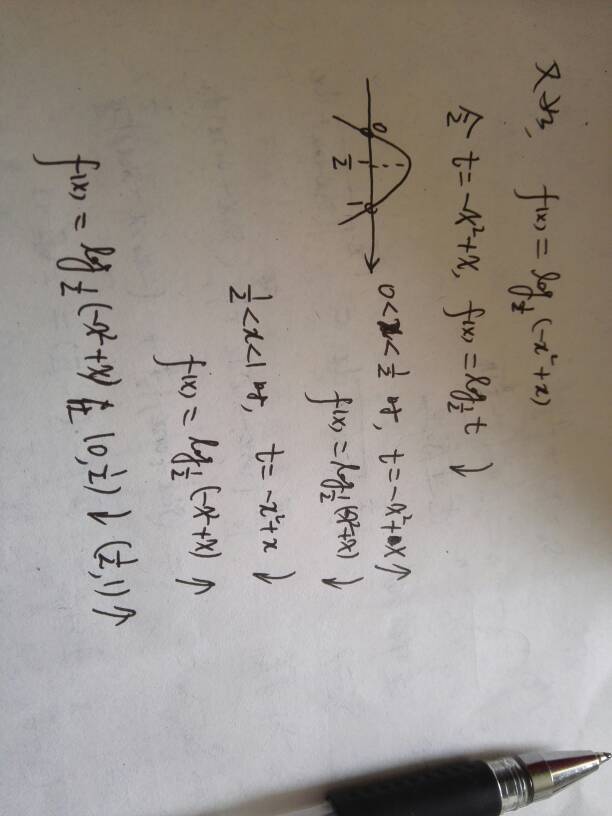 对于, f(x) = log½(-x²+x)
令 t = -x²+x, f(x) = log½t ↓
0 ½ 1
0<x<½ 时, t = -x²+x ↗
f(x) = log½(-x²+x) ↓
½<x<1 时, t = -x²+x ↓
f(x) = log½(-x²+x) ↗
f(x) = log½(-x²+x) 在 (0,½) ↓ (½,1) ↗